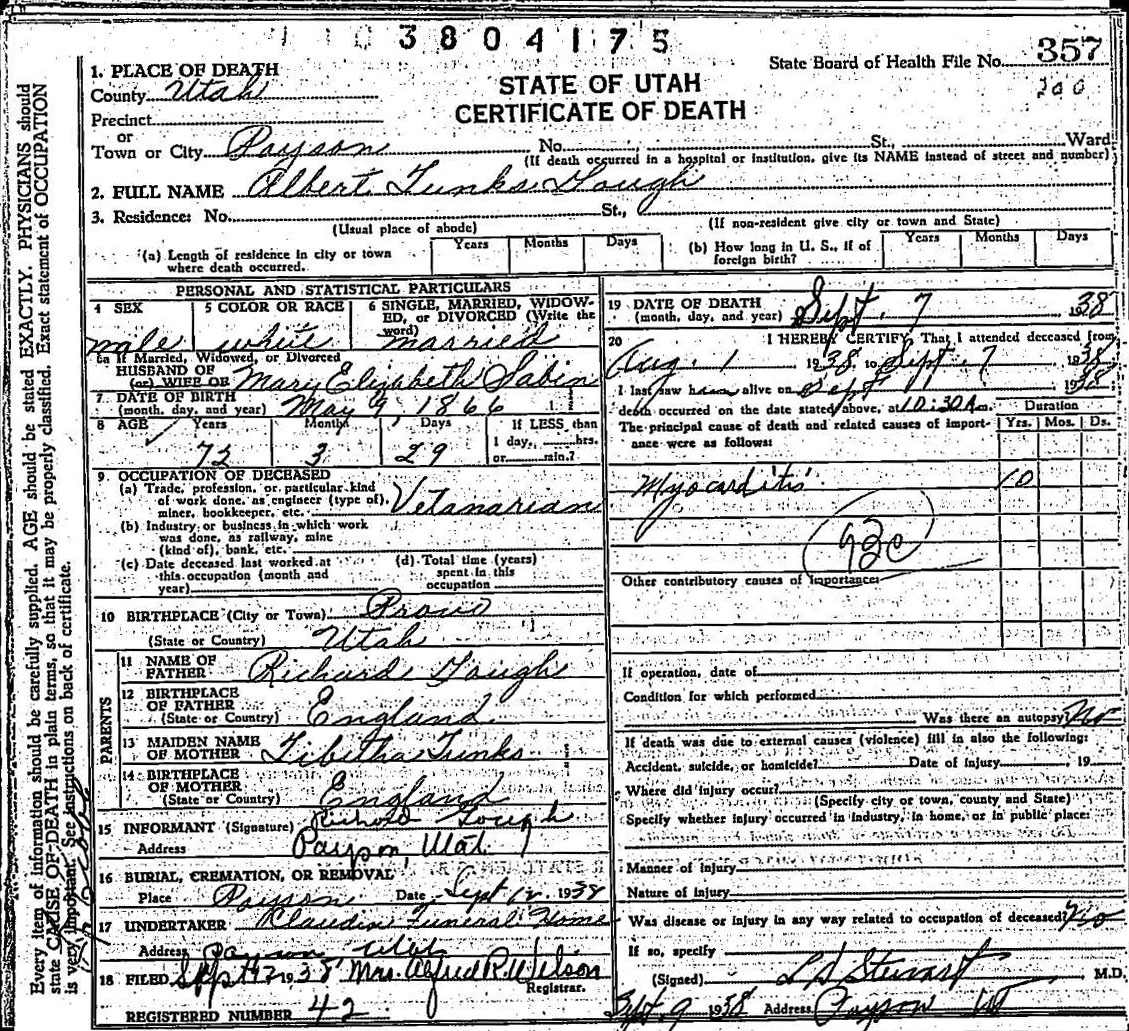 3804175
State Board of Health File No. 357
200
STATE OF UTAH
CERTIFICATE OF DEATH
1. PLACE OF DEATH
County Utah
Precinct
or
Town or City Payson No. St., Ward
(If death occurred in a hospital or institution, give its NAME instead of street and number)
2. FULL NAME Albert Tunks Gough
3. Residence: No. St.,
(Usual place of abode) (If non-resident give city or town and State)
(a) Length of residence in city or town where death occurred. Years Months Days
(b) How long in U. S., if of foreign birth? Years Months Days
PERSONAL AND STATISTICAL PARTICULARS
4 SEX 5 COLOR OR RACE 6 SINGLE, MARRIED, WIDOW-
ED, or DIVORCED (Write the
word)
male white married
6a If Married, Widowed, or Divorced
HUSBAND OF
(or) WIFE OF Mary Elizabeth Sabin
7 DATE OF BIRTH
(month, day, and year) May 9, 1866
8 AGE Years Months Days If LESS than
1 day, hrs.
or min.?
72 3 29
9 OCCUPATION OF DECEASED
(a) Trade, profession, or particular kind
of work done, as engineer (type of),
miner, bookkeeper, etc. Vetanarian
(b) Industry or business in which work
was done, as railway, mine
(kind of), bank, etc.
(c) Date deceased last worked at
this occupation (month and
year)
(d) Total time (years)
spent in this
occupation
10 BIRTHPLACE (City or Town) Provo
(State or Country) Utah
PARENTS
11 NAME OF
FATHER Richard Gough
12 BIRTHPLACE
OF FATHER
(State or Country) England
13 MAIDEN NAME
OF MOTHER Tibetha Tunks
14 BIRTHPLACE
OF MOTHER
(State or Country) England
15 INFORMANT (Signature) Gough
Address Payson, Utah
16 BURIAL, CREMATION, OR REMOVAL
Place Payson Date Sept 12 1938
17 UNDERTAKER Claudin Funeral Home
Address Payson Utah
18 FILED Sept 12 1938 Mrs. Alfred R. Wilson
Registrar.
REGISTERED NUMBER 42
19 DATE OF DEATH
(month, day, and year) Sept. 7 1938
20 I HEREBY CERTIFY, That I attended deceased from
Aug. 1 1938 to Sept. 7 1938
I last saw him alive on Sept 1938
death occurred on the date stated above, at 10:30 A m.
The principal cause of death and related causes of import-
ance were as follows:
Duration
Yrs. Mos. Ds.
Myocarditis 10
93c
Other contributory causes of importance:
If operation, date of
Condition for which performed
Was there an autopsy? No
If death was due to external causes (violence) fill in also the following:
Accident, suicide, or homicide? Date of injury 19
Where did injury occur?
(Specify city or town, county and State)
Specify whether injury occurred in industry, in home, or in public place:
Manner of injury
Nature of injury
Was disease or injury in any way related to occupation of deceased? No
If so, specify
(Signed) L D Stewart M.D.
Sept. 9 1938 Address Payson Ut
Every item of information should be carefully supplied. AGE should be stated EXACTLY. PHYSICIANS should
state CAUSE OF DEATH in plain terms, so that it may be properly classified. Exact statement of OCCUPATION
is very important. See instructions on back of certificate.